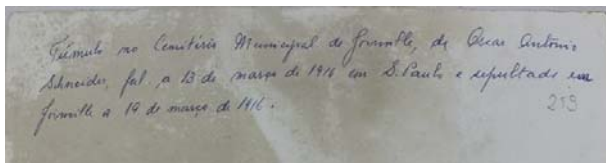 Túmulo no Cemitério Municipal de Joinville, de Oscar Antonio
Schneider, fal. a 13 de março de 1916 em S. Paulo e sepultado em
Joinville a 19 de março de 1916.
259